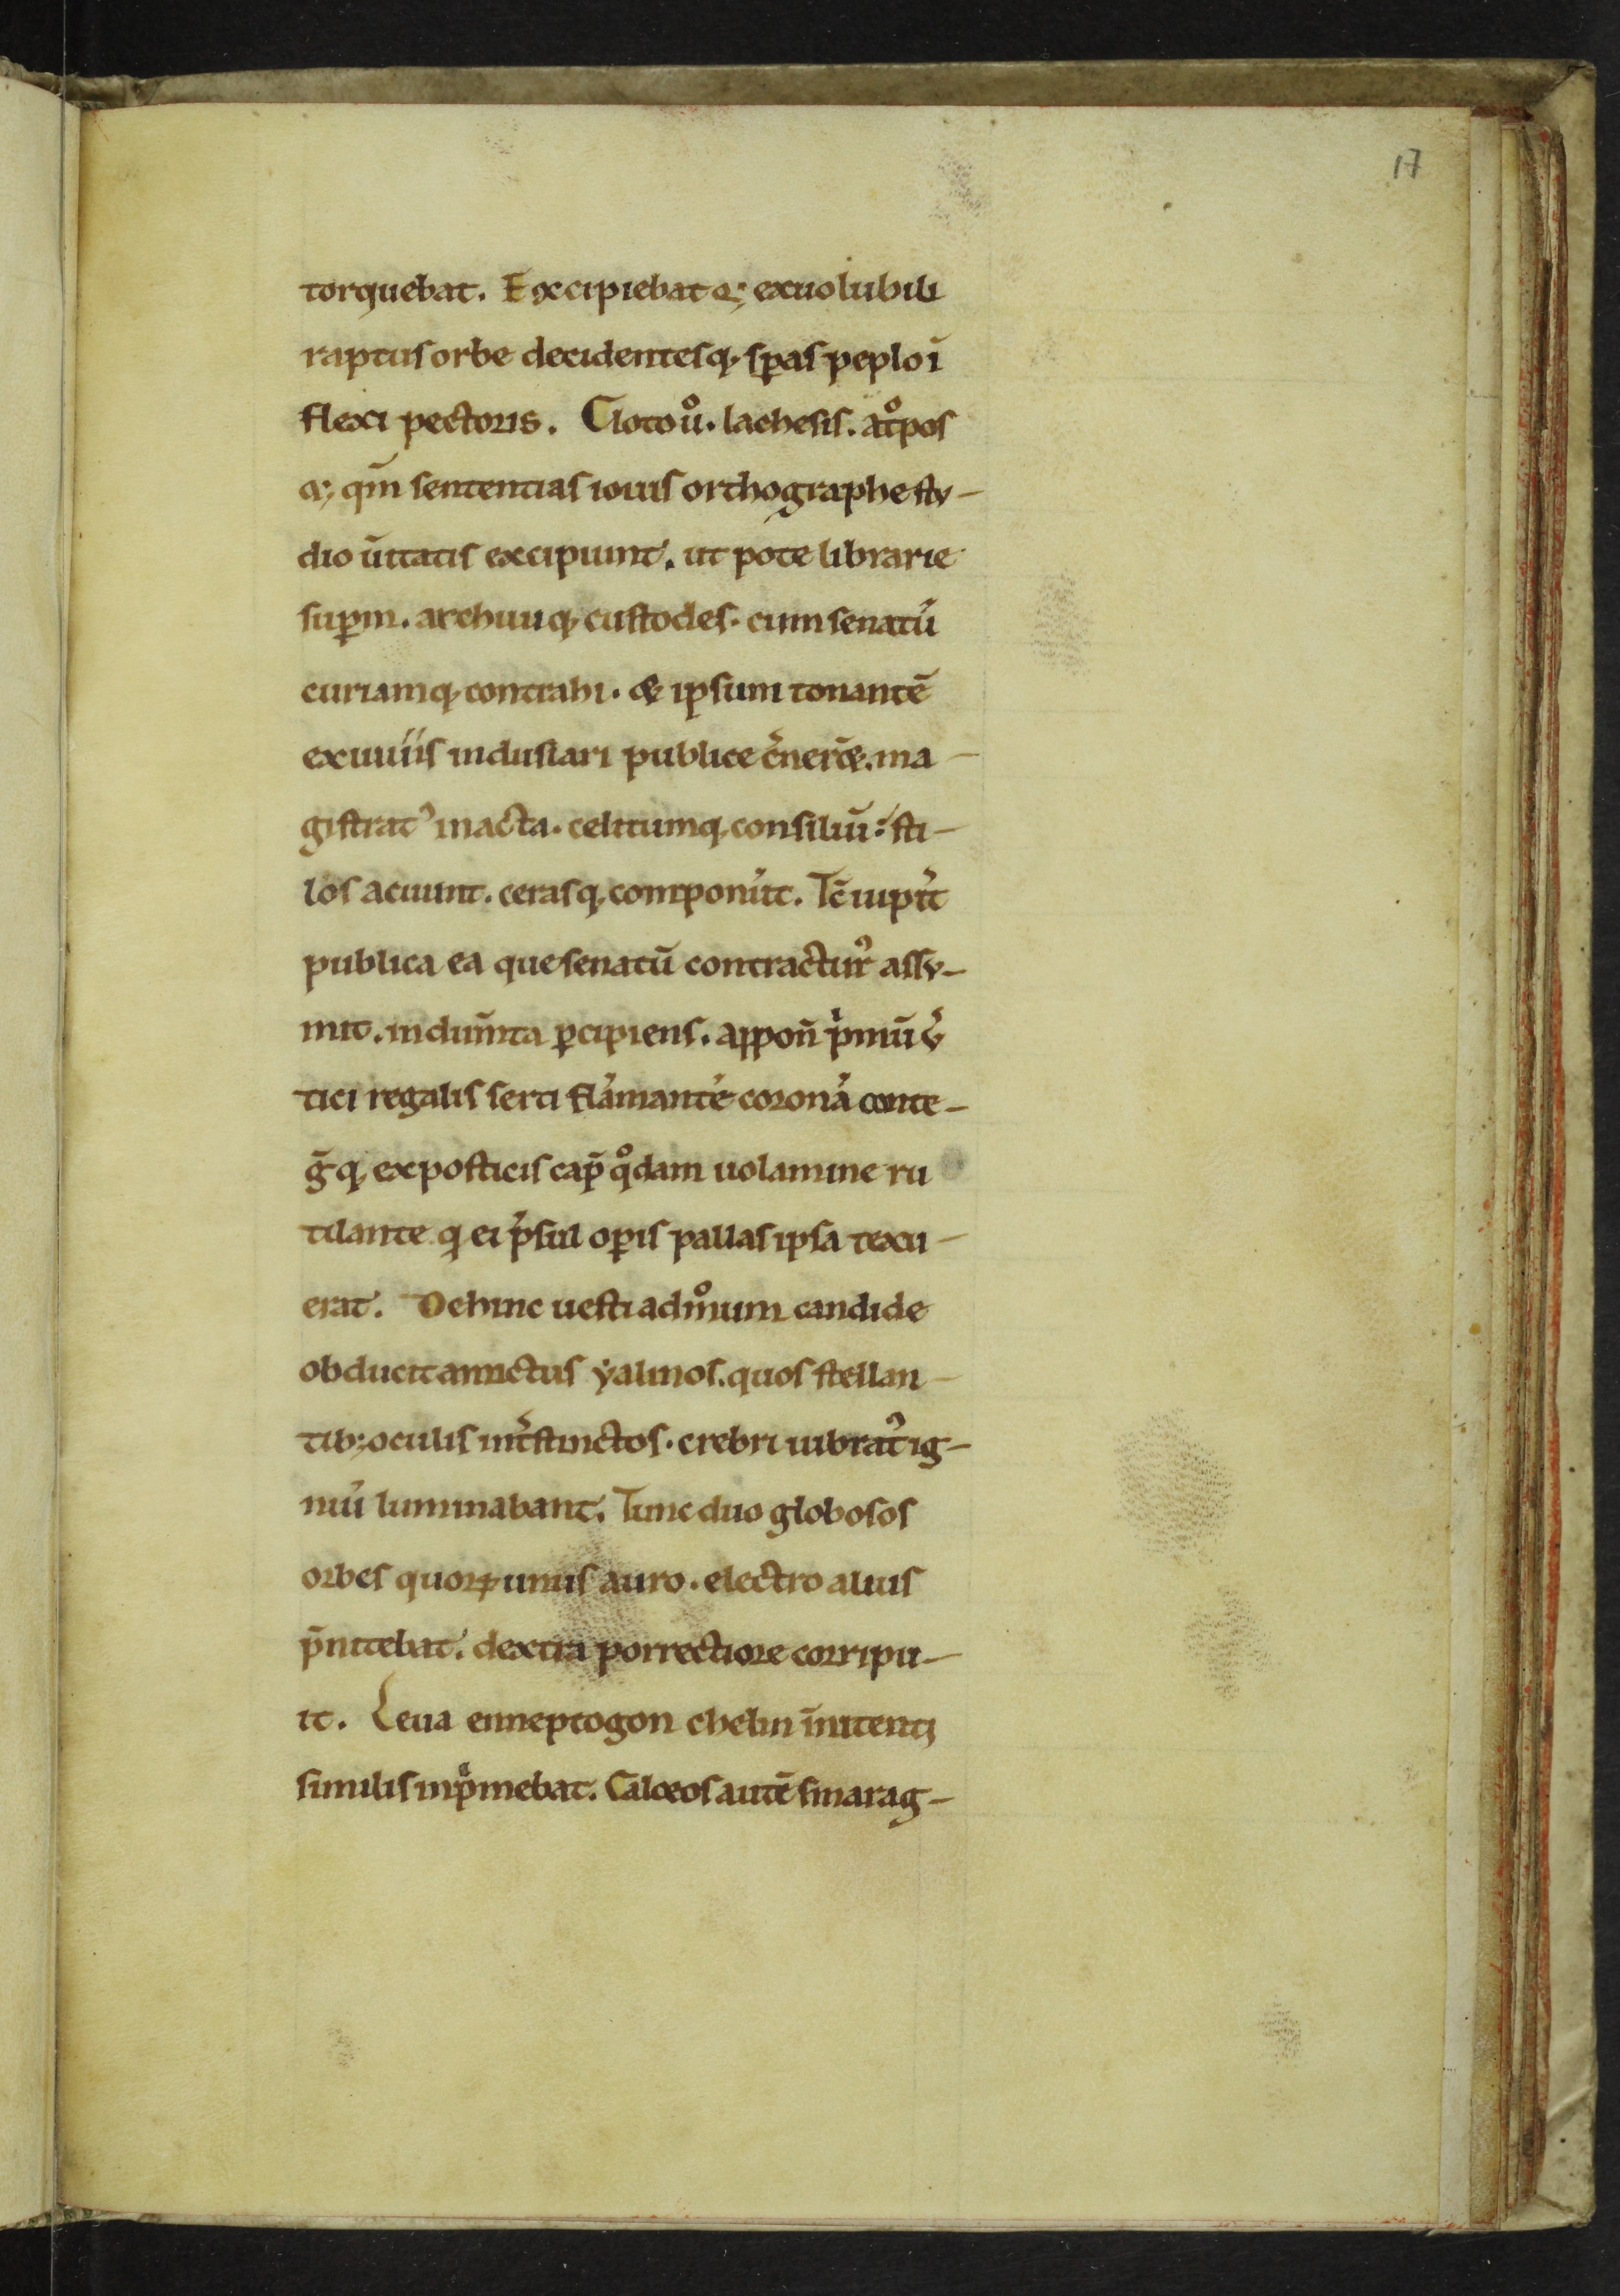 17
torquebat. Excipiebatq; exuolubili
raptus orbe decidentesq; sp̱as peplo ī
flexi pectoris. Cloto uͦ. lachesis. atͦpos
q; qm̄ sententias iouis orthographe stu-
dio ūitatis excipiunt. ut pote librarie
sup̱m. archiuiq; custodes. cum senatū
curiamq; contrahi. & ipsum tonantē
exuuiis indusiari publice c̄ner&. ma-
gistrat᾽ in acta. celitumq; consiliū: sti-
los acuunt. cerasq; componūt. Tc̄ iupit̄
publica ea que senatū contractur᾽ assu-
mit. indum̄ta p̱cipiens. appoń p̍mū ū
tici regalis serti flāmantē coronā conte-
ḡq; ex posticis cap̄ qͦdam uolamine ru
tilante q ei p̄sul op̱is pallas ipsa texu-
erat. Dehinc uesti admͦum candide
obducit amictus yalinos. quos stellan-
tib; oculis int̄stinctos. crebri uibrat᾽ ig-
niū luminabant. Tunc duo globosos
orbes quoꝝ unus auro. electro alius
p̄nitebat. dextra porrectiore corripu-
it. Leua enneptogon chelin īnitenti
similis inp̍mebat. Calceos autē smarag-